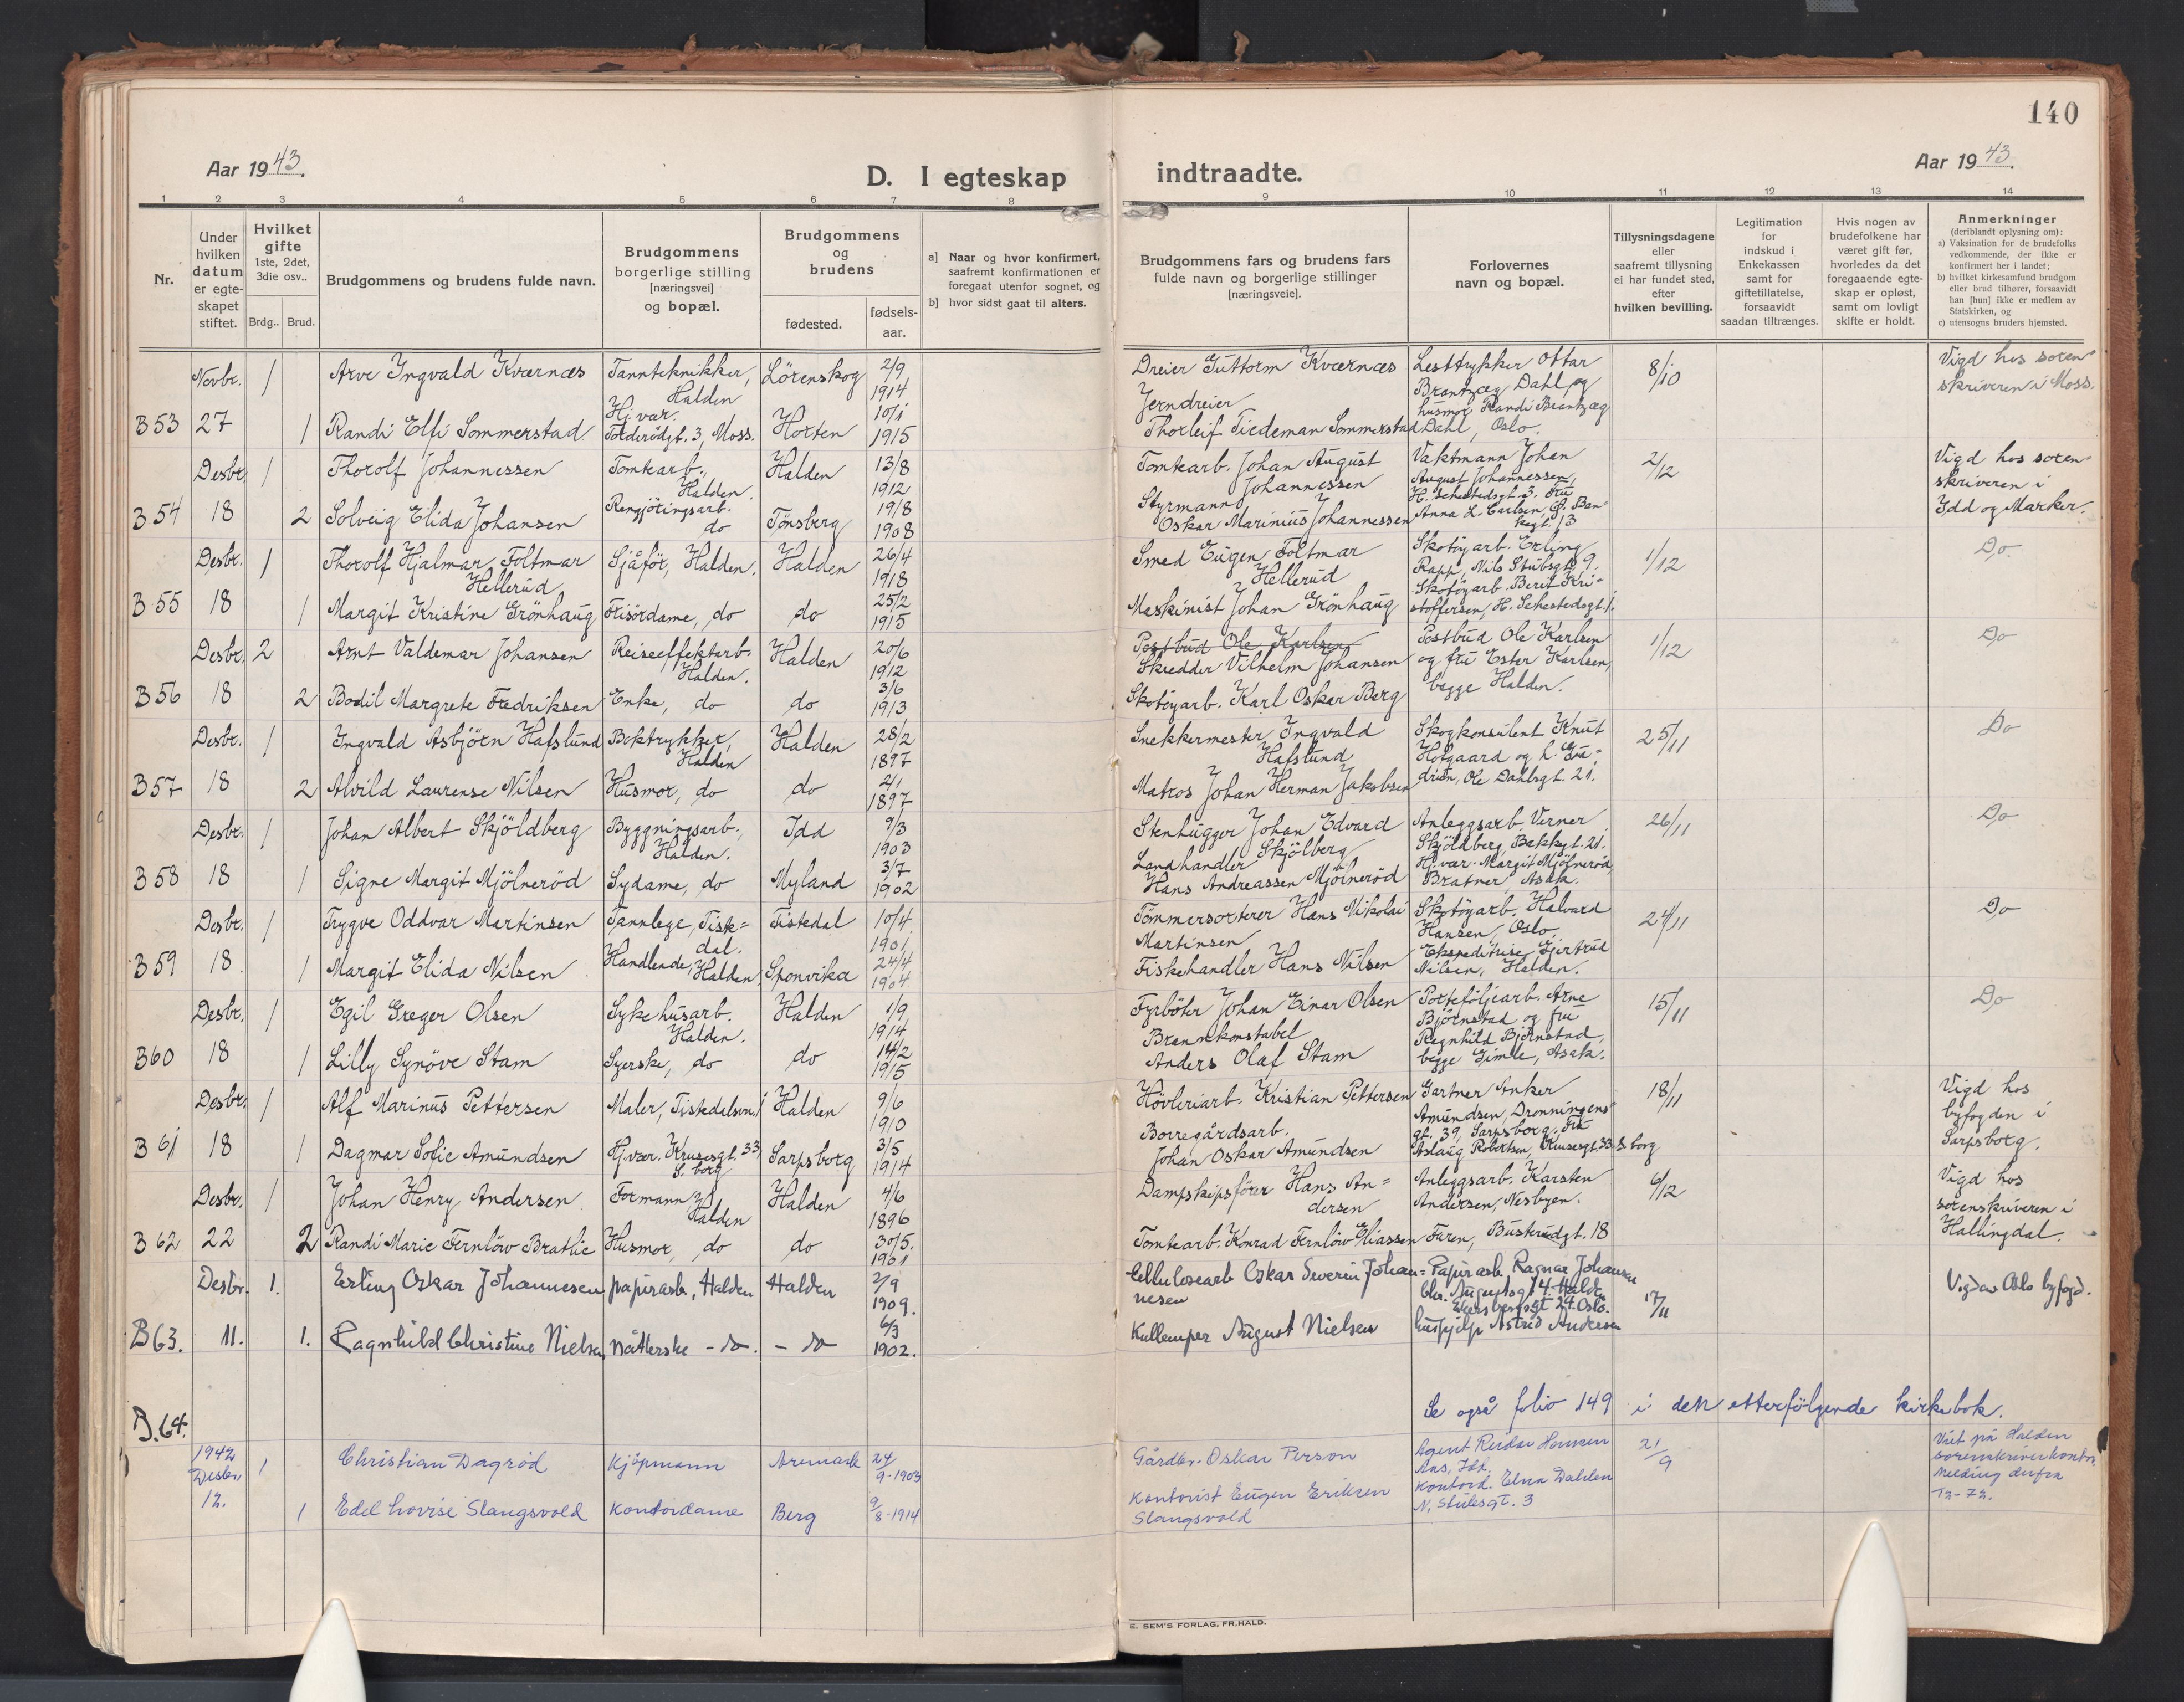 140
Aar 1943.
D. I egteskap indtraadte.
Aar 1943.
1 2 3 4 5 6 7 8 9 10 11 12 13 14
Nr.
Under hvilken datum er egte-skapet stiftet.
Hvilket gifte 1ste, 2det, 3die osv..
Brdg.. Brud.
Brudgommens og brudens fulde navn.
Brudgommens borgerlige stilling [næringsvei] og bopæl.
Brudgommens og brudens
fødested.
fødsels-aar.
a] Naar og hvor konfirmert, saafremt konfirmationen er foregaat utenfor sognet, og
b] hvor sidst gaat til alters.
Brudgommens fars og brudens fars fulde navn og borgerlige stillinger [næringsveie].
Forlovernes navn og bopæl.
Tillysningsdagene eller saafremt tillysning ei har fundet sted, efter hvilken bevilling.
Legitimation for indskud i Enkekassen samt for giftetillatelse, forsaavidt saadan tiltrænges.
Hvis nogen av brudefolkene har været gift før, hvorledes da det foregaaende egte-skap er opløst, samt om lovligt skifte er holdt.
Anmerkninger (deriblandt oplysning om):
a) Vaksination for de brudefolks vedkommende, der ikke er konfirmert her i landet;
b) hvilket kirkesamfund brudgom eller brud tilhører, forsaavidt han [hun] ikke er medlem av Statskirken, og
c) utensogns bruders hjemsted.
Novbr. 1 Arve Ingvald Kværnæs Tannteknikker, Halden Lörenskog 2/9 1914 Dreier Guttorm Kværnæs Jerndreier Lesttrykker Ottar Brantzæg Dahl og husmor Randi Brantzæg Dahl, Oslo. 8/10 Vigd hos soren-skriveren i Moss.
B 53 27 1 Randi Elfi Sommerstad Hj.vær. Torderödgt. 3, Moss. Horten 10/1 1915 Thorleif Tiedeman Sommerstad
Desbr. 1 Thorolf Johannessen Tomtearb., Halden. Halden 13/8 1912 Tomtearb. Johan August Johannessen Vaktmann Johan August Johannessen, H. Sehestedsgt. 3. Fru Anna L. Carlsen, 2/12 Vigd hos soren-skriveren i Idd og Marker.
B 54 18 2 Solveig Elida Johansen Rengjöringsarb. do Tønsberg 19/8 1908 Styrmann Oskar Marinius Johannessen
Desbr. 1 Thorolf Hjalmar Foltmar Hellerud Sjåför, Halden. Halden 26/4 1918 Smed Eugen Foltmar Hellerud Skotöyarb. Erling Rapp, Nils Stubsgt. 9. Skotöyarb. Berit Kri-stoffersen, H. Sehestedsgt. 1. 1/12 Do.
B 55 18 1 Margit Kristine Grönhaug Frisördame, do do 25/2 1915 Maskinist Johan Grönhaug
Desbr. 2 Arnt Valdemar Johansen Reiseeffektarb. Halden. Halden 20/6 1912 Postbud Ole Karlsen Skredder Vilhelm Johansen Postbud Ole Karlsen og fru Ester Karlsen, begge Halden. 1/12 Do
B 56 18 2 Bodil Margrete Fredriksen Enke, do do 3/6 1913 Skotöyarb. Karl Oskar Berg
Desbr. 1 Ingvald Asbjörn Hafslund Boktrykker, Halden Halden 28/2 1897 Snekkermester Ingvald Hafslund Skogkonsulent Knut Hofgaard og h. Gu-drun, Ole Dahlsgt. 21. 25/11 Do
B 57 18 2 Alvild Laurense Nilsen Husmor, do do 2/1 1897 Matros Johan Herman Jakobsen
Desbr. 1 Johan Albert Skjöldberg Byggningsarb., Halden. Idd 9/3 1903 Stenhugger Johan Edvard Skjölberg Anleggsarb. Verner Skjöldberg, Bakkgt. 21. Hj.vær. Margit Mjölneröd, Bratner, Asak. 26/11 Do
B 58 18 1 Signe Margit Mjölneröd Sydame, do Myland 3/7 1902 Landhandler Hans Andreassen Mjölneröd
Desbr. 1 Trygve Oddvar Martinsen Tannlege, Tiste=dal. Tistedal 10/4 1901 Tömmersorterer Hans Nikolai Martinsen Skotöyarb. Halvard Hansen, Oslo. Ekspeditrise Gjertrud Nilsen, Halden. 24/11 Do
B 59 18 1 Margit Elida Nilsen Handlende, Halden. Sponvika 24/4 1904 Fiskehandler Hans Nilsen
Desbr. 1 Egil Greger Olsen Sykehusarb. Halden. Halden 1/9 1914 Fyrböter Johan Einar Olsen Porteföljearb. Arne Björnstad og fru Ragnhild Björnstad, begge Gimle, Asak. 15/11 Do
B 60 18 1 Lilly Synöve Stam Syerske, do do 14/2 1915 Brannkonstabel Anders Olaf Stam
Desbr. 1 Alf Marinus Pettersen Maler, Tistedalsvn. 1 Halden 9/6 1910 Hövleriarb. Kristian Pettersen Gartner Anker Amundsen, Dronningens-gt. 39, Sarpsborg. Fru Aslaug Robertsen, Krusesgt. 33. S.borg 18/11 Vigd hos byfogden i Sarpsborg.
B 61 18 1 Dagmar Sofie Amundsen Hj.vær. Krusesgt. 33, S. borg Sarpsborg 3/5 1914 Borregårdsarb. Johan Oskar Amundsen
Desbr. 1 Johan Henry Andersen Formann, Halden Halden 4/6 1896 Dampskipsförer Hans An=dersen Anleggsarb. Karsten Andersen, Nesbyen. 6/12 Vigd hos sorenskriveren i Hallingdal.
B 62 22 2 Randi Marie Fernlöw Brathie Husmor, do do 30/5. 1901 Tomtearb. Konrad Fernlöw Eliassen Faren, Busterudgt. 18
Desbr. 1. Erling Oskar Johannesen papirarb., Halden Halden 2/9 1909. Cellulosearb Oskar Severin Johan=nesen Papirarb. Ragnar Johansen Chr. Augustsgt 4. Halden Ekersbergsgt 24. Oslo. hushjelp Astrid Andersen 17/11 Vigd av Oslo byfogd.
B 63. 11. 1. Ragnhild Christine Nielsen, nåtlerske - do. - do 6/3 1902. Kullemper August Nielsen
Se også folio 149 i den etterfölgende kirkebok.
B. 64.
1942 Desbr 1 Christian Dagrød Kjøpmann Aremark 24/9-1903 Gårdbr. Oskar Person Agent Reidar Hansen Ans, Idd. Kontord. Elna Dahlen N. Stubsgt. 3 21/9 Viet på Halden sorenskriverkontor. Melding derfra
12. 1 Edel Lovise Slangsvold Kontordame Berg 9/8-1914 Kontorist Eugen Eriksen Slangsvold
E. SEM'S FORLAG, FR.HALD.